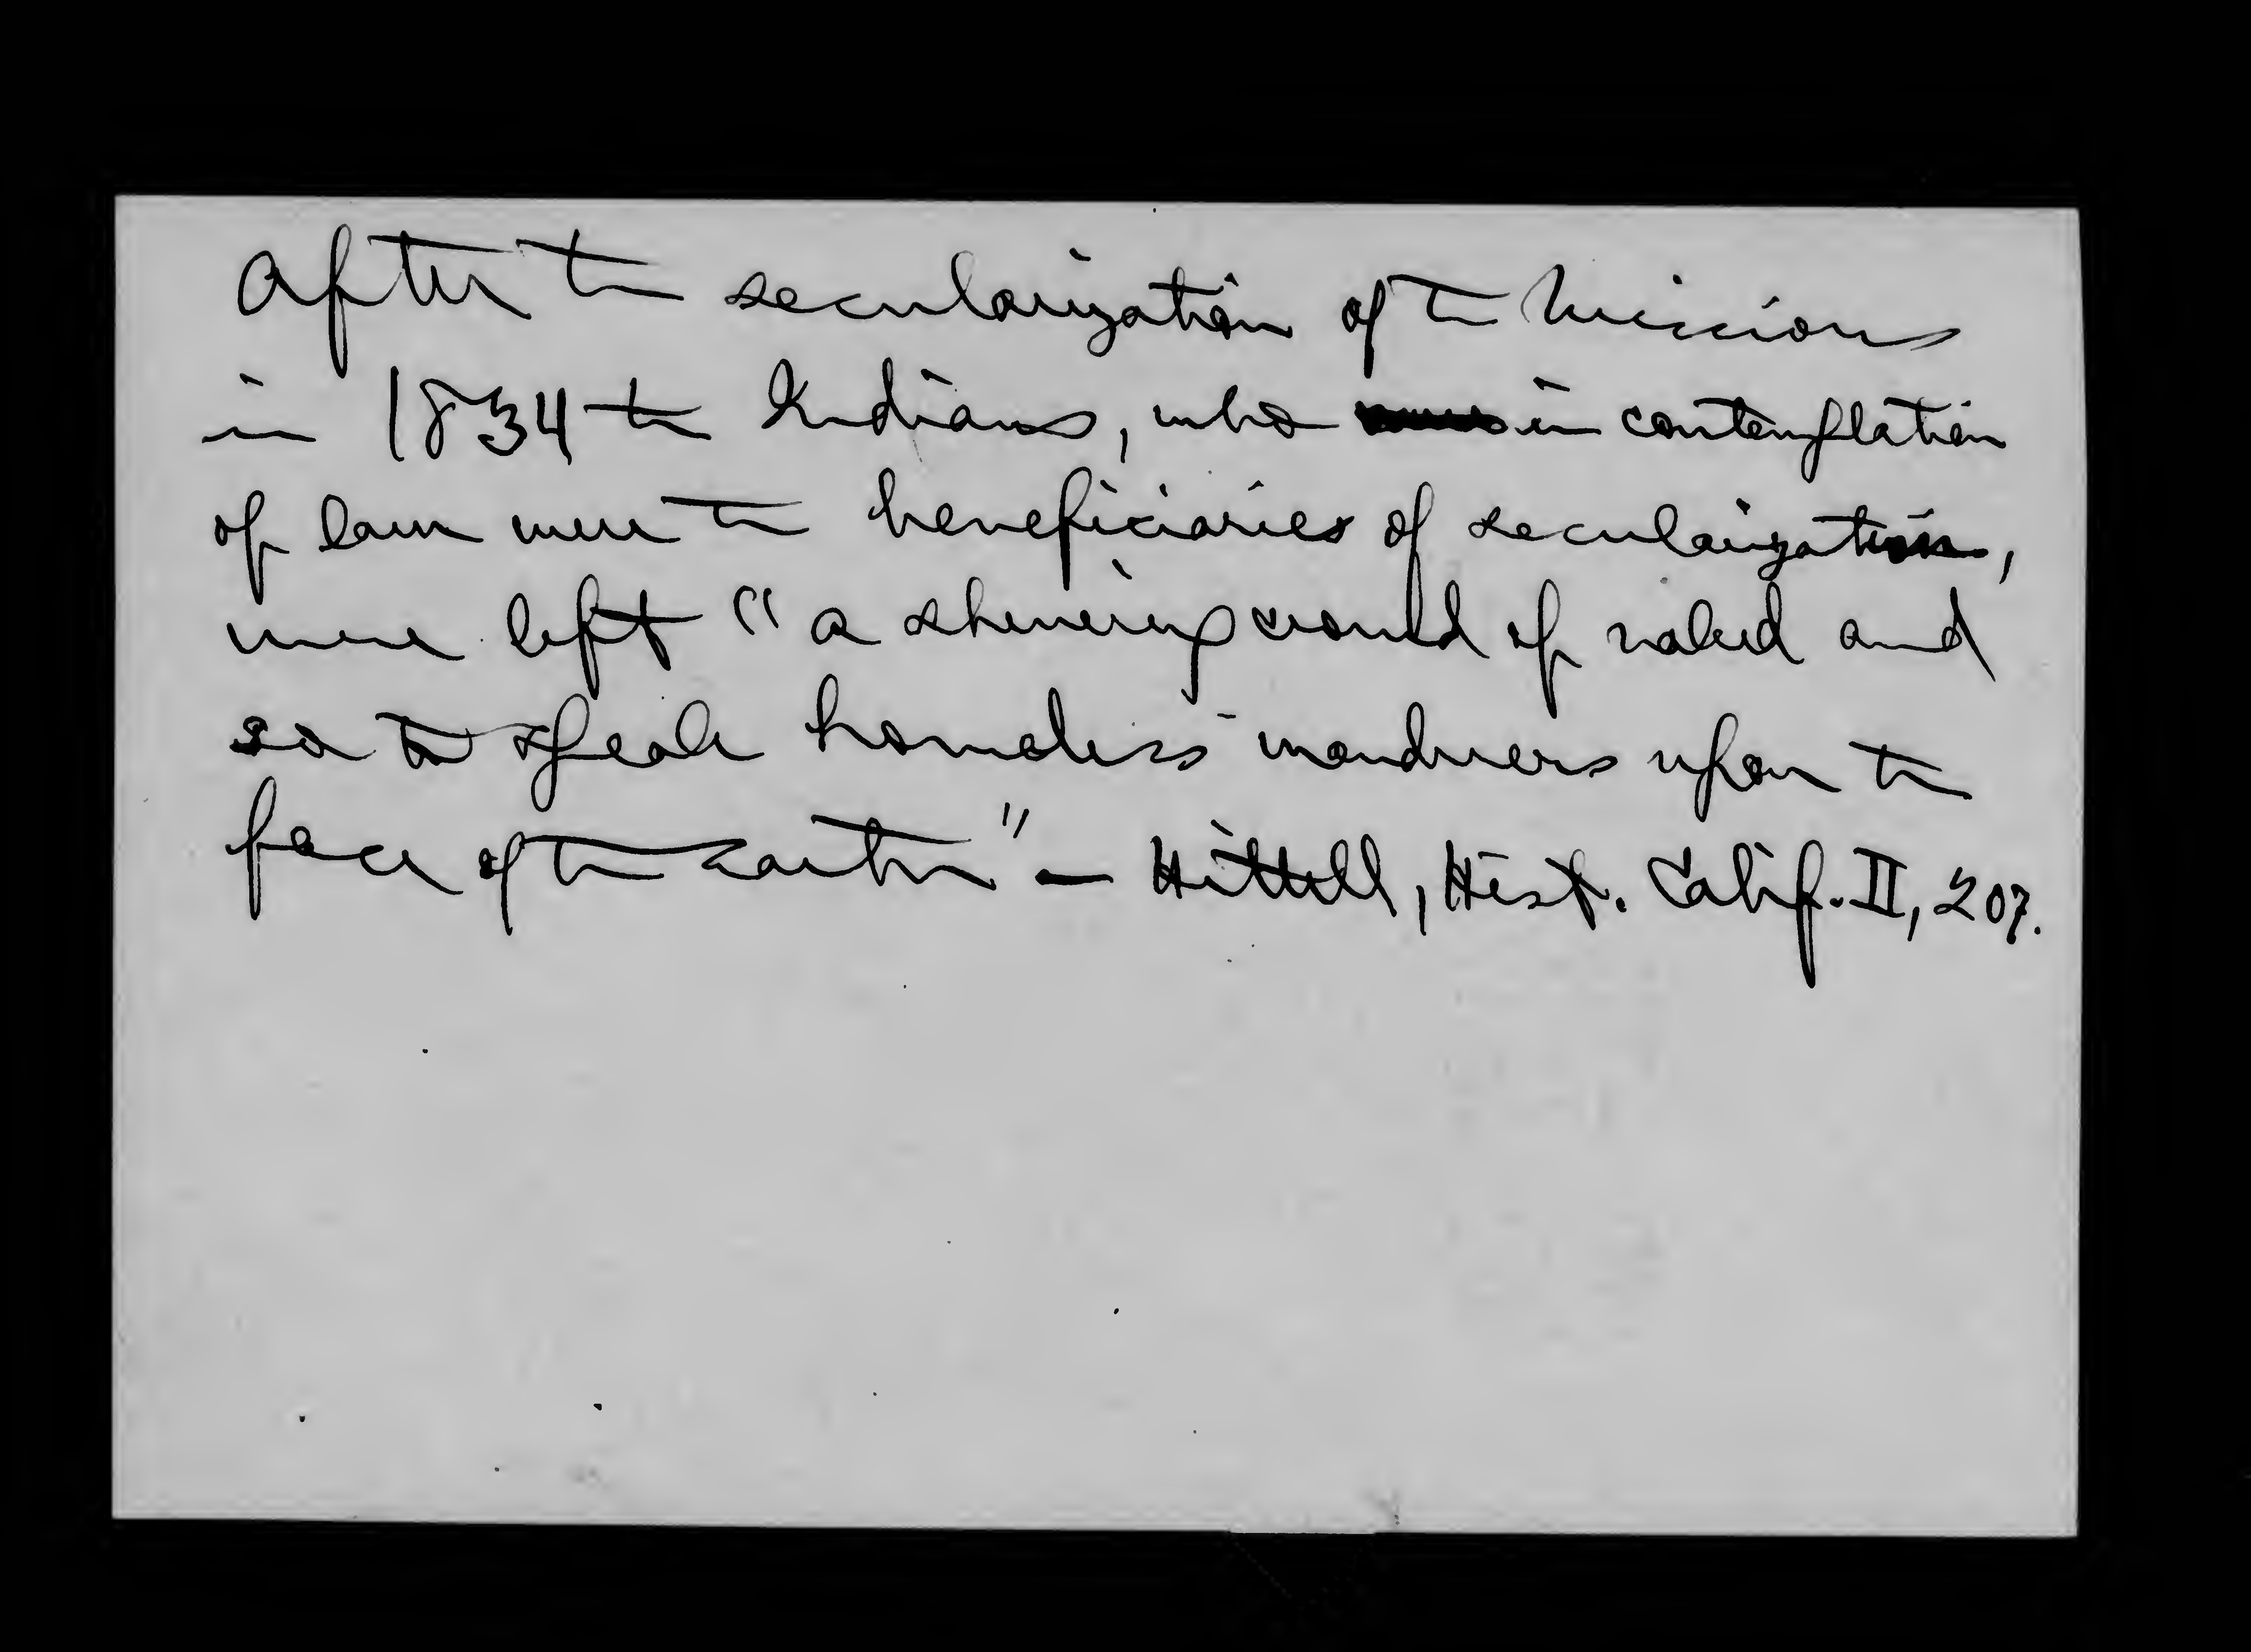 After the secularization of the Missions
in 1834 the Indians, who in contemplation
of law were the beneficiaries of secularization,
were left "a shivering crowd of naked and
so to speak homeless wanderers upon the
face of the earth" — Hittell, Hist. Calif. II, 207.